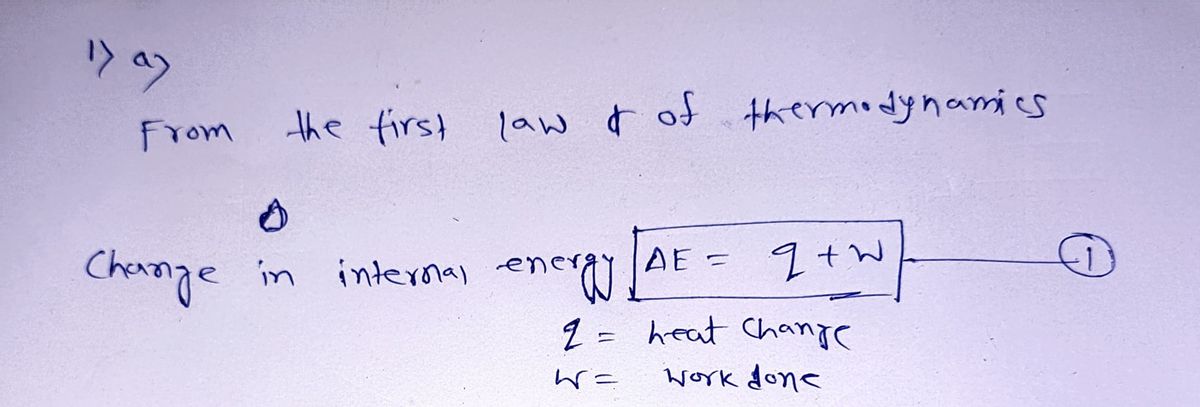 1) a)
From the first law of thermodynamics
Change in internal energy ΔE = q + w ①
q = heat change
w = work done